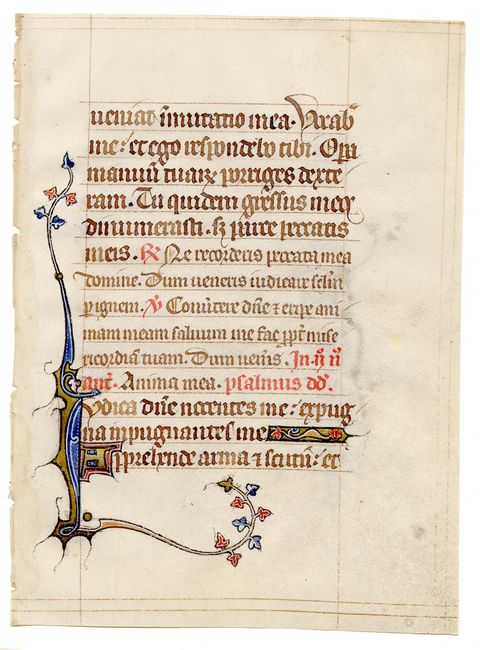 ueniat īmutatio mea. Vocab'
me: et ego respondebo tibi. Opi
manuū tuaꝝ porriges dexte
ram. Tu quidem gressus meos
dinumerasti. sꝫ parce peccatis
meis. ℟ Ne recorderis peccata mea
domine. Dum ueneris iudicare sclm̄
ꝑ ignem. ℣ Conūtere dn̄e et eripe ani
mam meam saluum me fac ꝓpt̄ mise
ricordiā tuam. Dum uen̄is. In
ant̄. Anima mea. psalmus dd̄.
Iudica dn̄e nocentes me: expug
na inpugnantes me
Apprehende arma ⁊ scutū: et